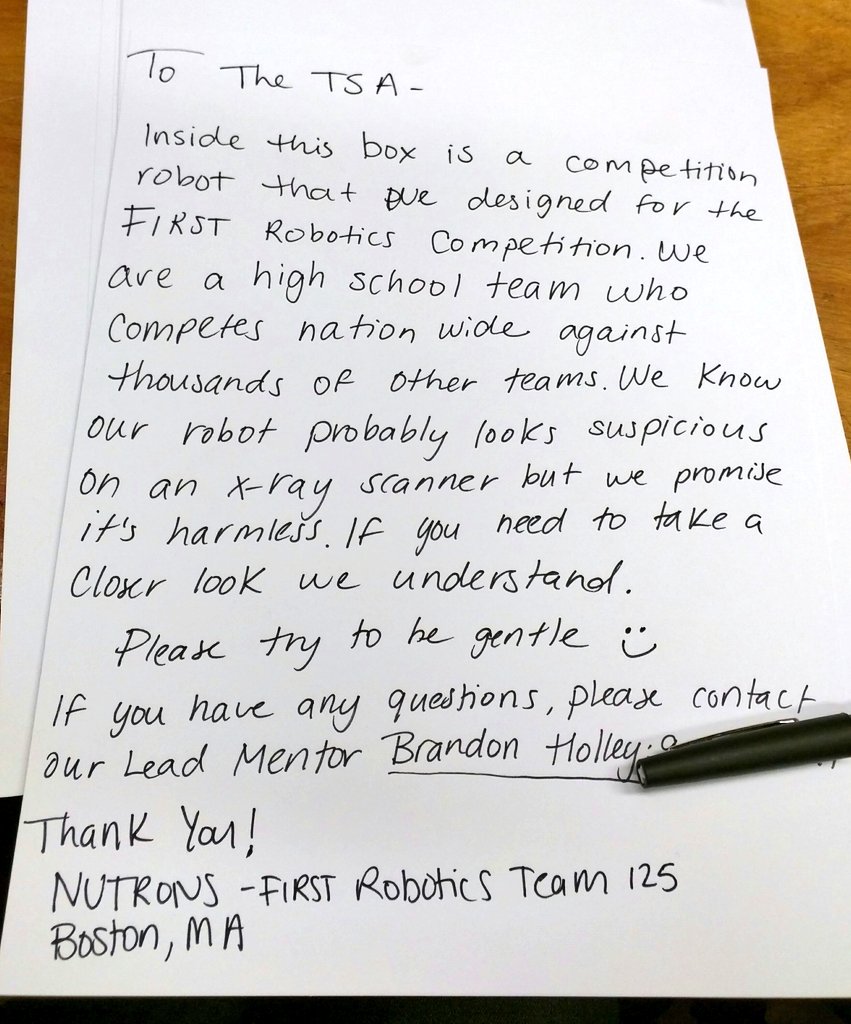 To The TSA -
Inside this box is a competition
robot that we designed for the
FIRST Robotics Competition. We
are a high school team who
competes nation wide against
thousands of other teams. We know
our robot probably looks suspicious
on an x-ray scanner but we promise
it's harmless. If you need to take a
closer look we understand.
Please try to be gentle :)
If you have any questions, please contact
our Lead Mentor Brandon Holley:
Thank You!
NUTRONS - FIRST Robotics Team 125
Boston, MA